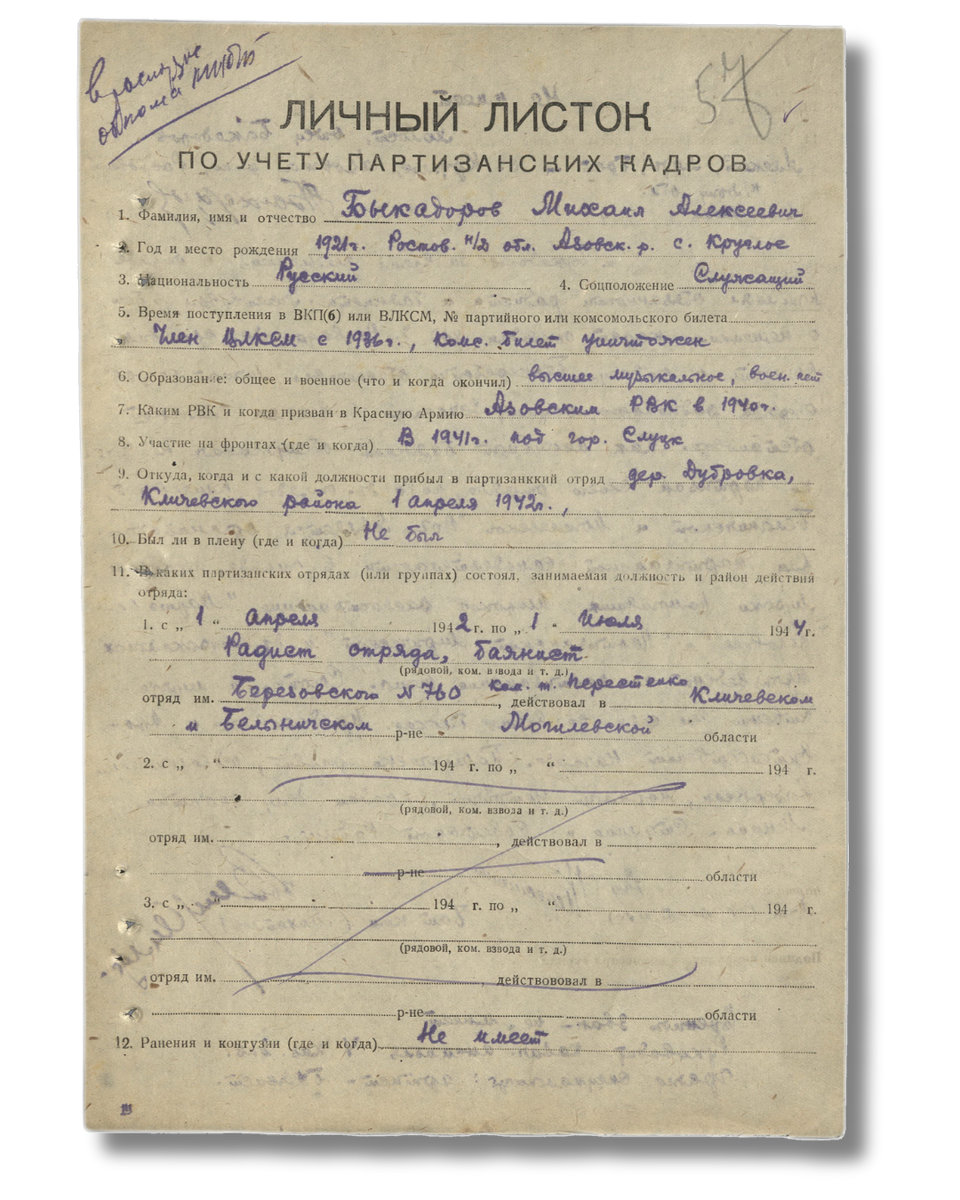 в распоряже
обкома КП(б)Б
57
ЛИЧНЫЙ ЛИСТОК
ПО УЧЕТУ ПАРТИЗАНСКИХ КАДРОВ
1. Фамилия, имя и отчество Быкадоров Михаил Алексеевич
2. Год и место рождения 1921г. Ростов. н/Д обл. Азовск. р. с. Круглое
3. Национальность Русский 4. Соцположение Служащий
5. Время поступления в ВКП(б) или ВЛКСМ, № партийного или комсомольского билета
Член ВЛКСМ с 1936г., Комс. билет уничтожен
6. Образование: общее и военное (что и когда окончил) высшее музыкальное, воен. нет
7. Каким РВК и когда призван в Красную Армию Азовским РВК в 1940г.
8. Участие на фронтах (где и когда) В 1941г. под гор. Слуцк
9. Откуда, когда и с какой должности прибыл в партизанккий отряд дер. Дубровка,
Кличевского района 1 апреля 1942г.,
10. Был ли в плену (где и когда) Не был
11. В каких партизанских отрядах (или группах) состоял, занимаемая должность и район действий
отряда:
1. с „ 1 “ апреля 1942 г. по „ 1 “ Июля 1944 г.
Радист отряда, баянист.
(рядовой, ком. взвода и т. д.)
отряд им. Березовского N 760 ком. т. Перестенко, действовал в Кличевском
и Белыничском р-не Могилевской области
2. с „ “ 194 г. по „ “ 194 г.
(рядовой, ком. взвода и т. д.)
отряд им. , действовал в
р-не области
3. с „ “ 194 г. по „ “ 194 г.
(рядовой, ком. взвода и т. д.)
отряд им. , действововал в
р-не области
12. Ранения и контузии (где и когда) Не имеет